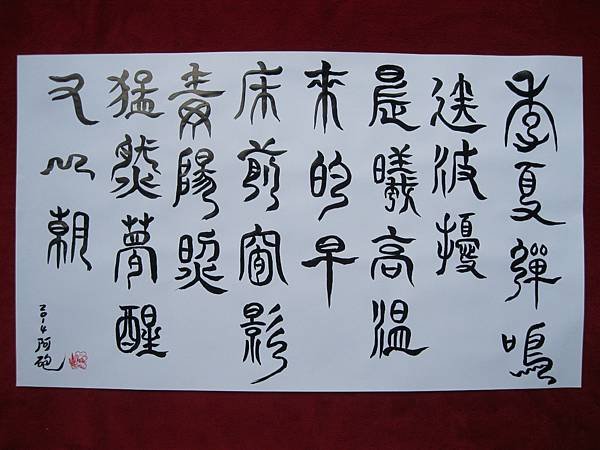 季夏蟬鳴
送波擾
晨曦高溫
來的早
床前窗影
毒陽照
猛然夢醒
又以朝
2014 阿砲